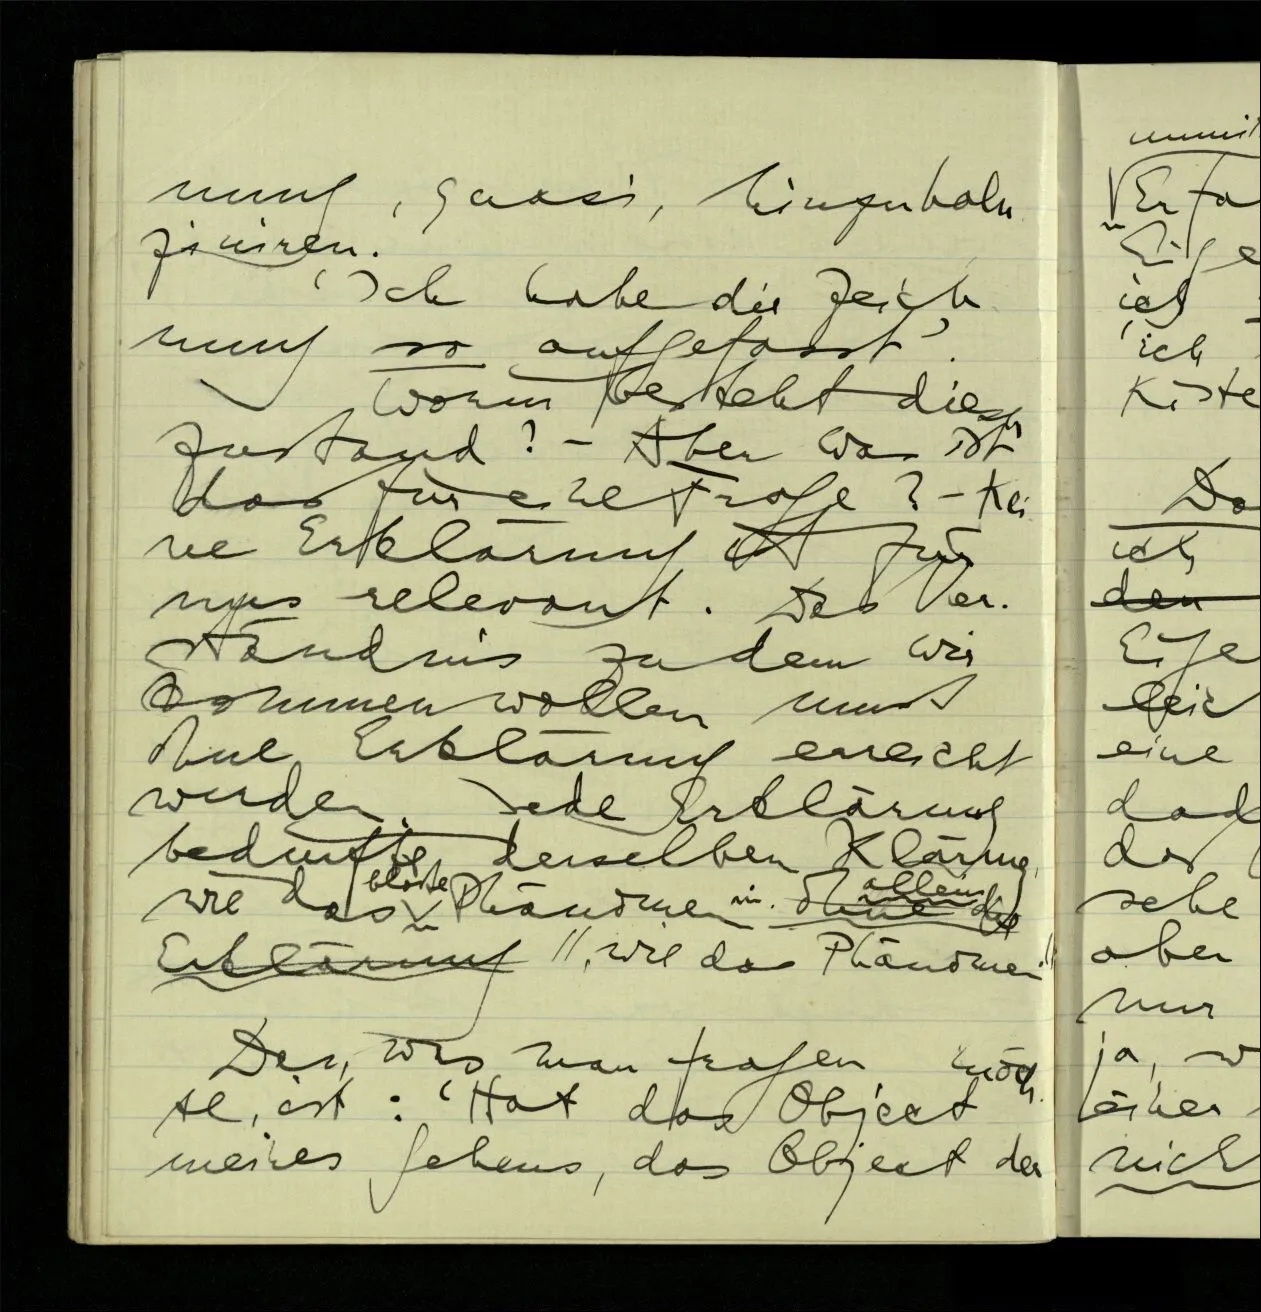 nung, quasi, hinzuhalu
ziniren.
'Ich habe die Zeich
nung so aufgefasst'.
\ Worin besteht dieser
Zustand? – Aber was ist
das für eine Frage? – Kei
ne Erklärung ist für
uns relevant. Das Ver-
ständnis zu dem wir
kommen wollen muss
ohne Erklärung erreicht
werden. Jede Erklärung
bedürfte derselben Klärung,
wie das bloße Phänomen allein
ohne die
Erklärung //, wie das Phänomen//
Das, was man fragen möch-
te, ist: 'Hat das Object
meines Sehens, das Object der
Erfa
Eige
ich
'ich
Kiste
Da
ich
den
Eige
leic
eine
daß
das
sehe
aber
nur
ja, w
nich